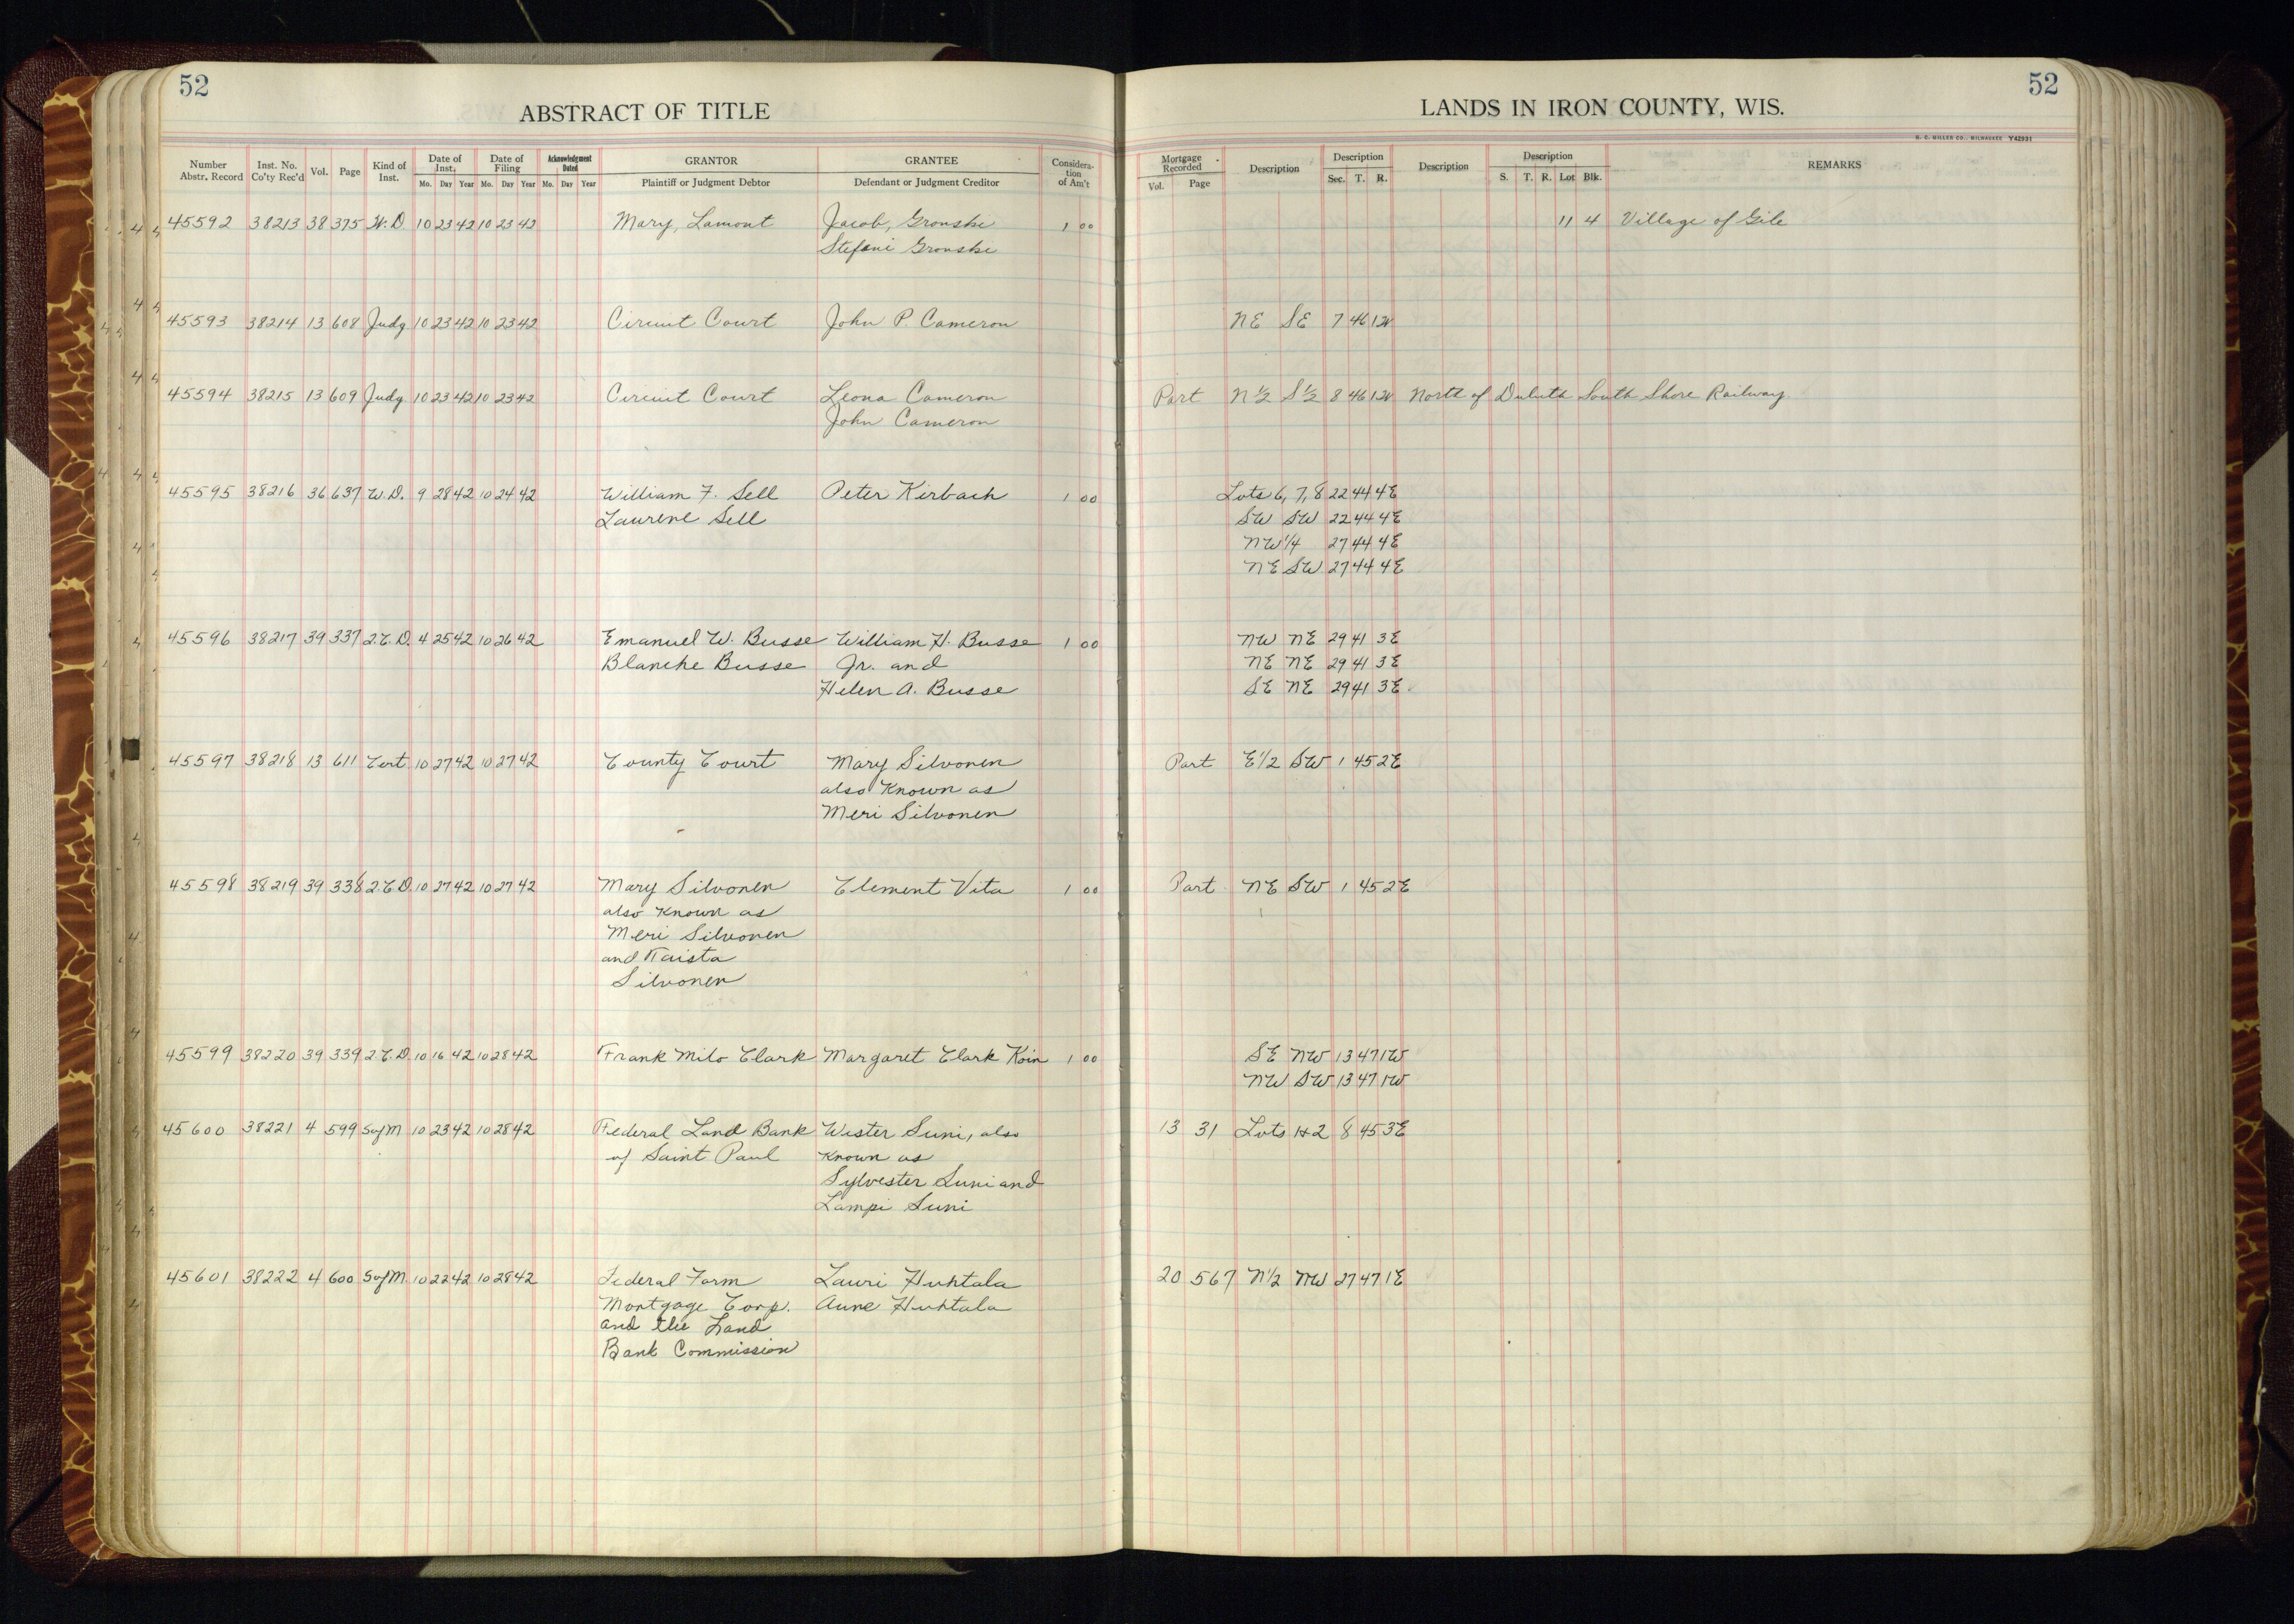 52
ABSTRACT OF TITLE
Number Abstr. Record Inst. No. Co'ty Rec'd Vol. Page Kind of Inst. Date of Inst. Mo. Day Year Date of Filing Mo. Day Year Acknowledgment Dated Mo. Day Year GRANTOR Plaintiff or Judgment Debtor GRANTEE Defendant or Judgment Creditor Considera-tion of Am't
45592 38213 38 375 W.D 10 23 42 10 23 42 Mary, Lamont Jacob, Gronske 1 00
Stefani Gronske
45593 38214 13 608 Judg 10 23 42 10 23 42 Circuit Court John P. Cameron
45594 38215 13 609 Judg 10 23 42 10 23 42 Circuit Court Leona Cameron
John Cameron
45595 38216 36 637 W.D. 9 28 42 10 24 42 William F. Sell Peter Kirbach 1 00
Laurene Sell
45596 38217 39 337 2.C.D. 4 25 42 10 26 42 Emanuel W. Busse William H. Busse 1 00
Blanche Busse Jr. and
Helen A. Busse
45597 38218 13 611 Cert. 10 27 42 10 27 42 County Court Mary Silvonen
also Known as
Meri Silvonen
45598 38219 39 338 2.C.D. 10 27 42 10 27 42 Mary Silvonen Clement Vita 1 00
also Known as
Meri Silvonen
and Taista
Silvonen
45599 38220 39 339 2.C.D. 10 16 42 10 28 42 Frank Milo Clark Margaret Clark Koin 1 00
45600 38221 4 599 SofM 10 23 42 10 28 42 Federal Land Bank Wester Suni, also
of Saint Paul Known as
Sylvester Suni and
Lampi Suni
45601 38222 4 600 SofM 10 22 42 10 28 42 Federal Farm Lauri Huhtala
Mortgage Corp. Aune Huhtala
and the Land
Bank Commission
52
LANDS IN IRON COUNTY, WIS.
H. C. MILLER CO., MILWAUKEE Y42931
Mortgage Recorded Vol. Page Description Description Sec. T. R. Description Description S. T. R. Lot Blk. REMARKS
11 4 Village of Gile
NE SE 7 46 1W
Part N½ S½ 8 46 1W North of Duluth South Shore Railway.
Lots 6, 7, 8 22 44 4E
SW SW 22 44 4E
NW1/4 27 44 4E
NE SW 27 44 4E
NW NE 29 41 3E
NE NE 29 41 3E
SE NE 29 41 3E
Part E1/2 SW 1 45 2E
Part NE SW 1 45 2E
SE NW 13 47 1W
NW SW 13 47 1W
13 31 Lots 1+2 8 45 3E
20 567 N1/2 NW 27 47 1E